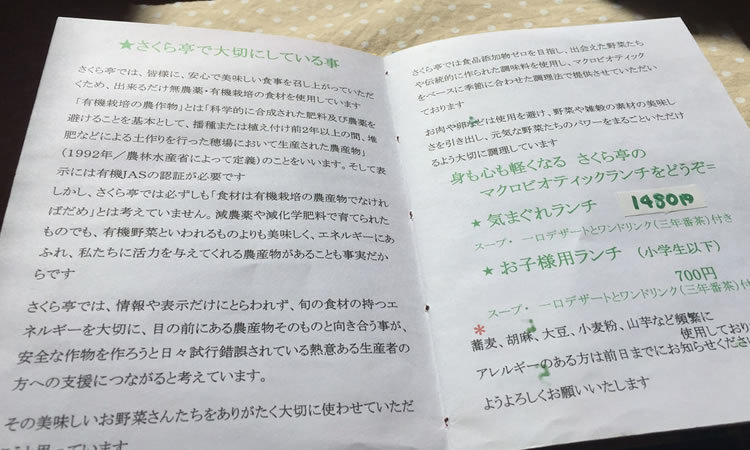 ★さくら亭で大切にしている事
さくら亭では、皆様に、安心で美味しい食事を召し上がっていただ
くため、出来るだけ無農薬・有機栽培の食材を使用しています
「有機栽培の農作物」とは「科学的に合成された肥料及び農薬を
避けることを基本として、播種または植え付け前2年以上の間、堆
肥などによる土作りを行った穂場において生産された農産物」
(1992年／農林水産省によって定義)のことをいいます。そして表
示には有機JASの認証が必要です
しかし、さくら亭では必ずしも「食材は有機栽培の農産物でなけれ
ばだめ」とは考えていません。減農薬や減化学肥料で育てられた
ものでも、有機野菜といわれるものよりも美味しく、エネルギーにあ
ふれ、私たちに活力を与えてくれる農産物があることも事実だか
らです
さくら亭では、情報や表示だけにとらわれず、旬の食材の持つエ
ネルギーを大切に、目の前にある農産物そのものと向き合う事が、
安全な作物を作ろうと日々試行錯誤されている熱意ある生産者の
方への支援につながると考えています。
その美味しいお野菜さんたちをありがたく大切に使わせていただ
こうと思っています
さくら亭では食品添加物ゼロを目指し、出会えた野菜たち
や伝統的に作られた調味料を使用し、マクロビオティック
をベースに季節に合わせた調理法で提供させていただい
ております
お肉や卵などは使用を避け、野菜や雑穀の素材の美味し
さを引き出し、元気な野菜たちのパワーをまるごといただけ
るよう大切に調理しています
身も心も軽くなる さくら亭の
マクロビオティックランチをどうぞ=
★ 気まぐれランチ 1480円
スープ・ 一口デザートとワンドリンク(三年番茶)付き
★ お子様用ランチ (小学生以下)
700円
スープ・ 一口デザートとワンドリンク(三年番茶)付
*
蕎麦、胡麻、大豆、小麦粉、山芋など頻繁に
使用しており
アレルギーのある方は前日までにお知らせくださ
ようよろしくお願いいたします